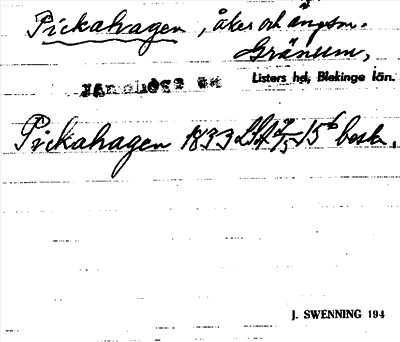 Pickahagen, åker och ängsm.
Gränum,
JÄMSHÖGS SN
Listers hd, Blekinge län.
Pickahagen 1833 LSA 15 beskr.
J. SWENNING 194